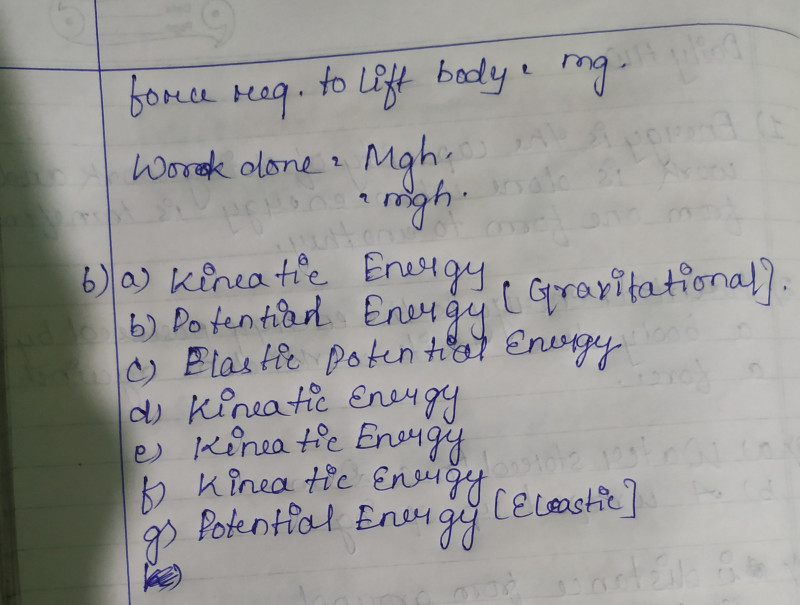 force req. to lift body = mg.
Work done = Mgh.
= mgh.
6) a) Kineatic Energy
b) Potential Energy [Gravitational].
c) Elastic Potential Energy
d) Kineatic Energy
e) Kineatic Energy
f) Kineatic Energy
g) Potential Energy [Eleastic]